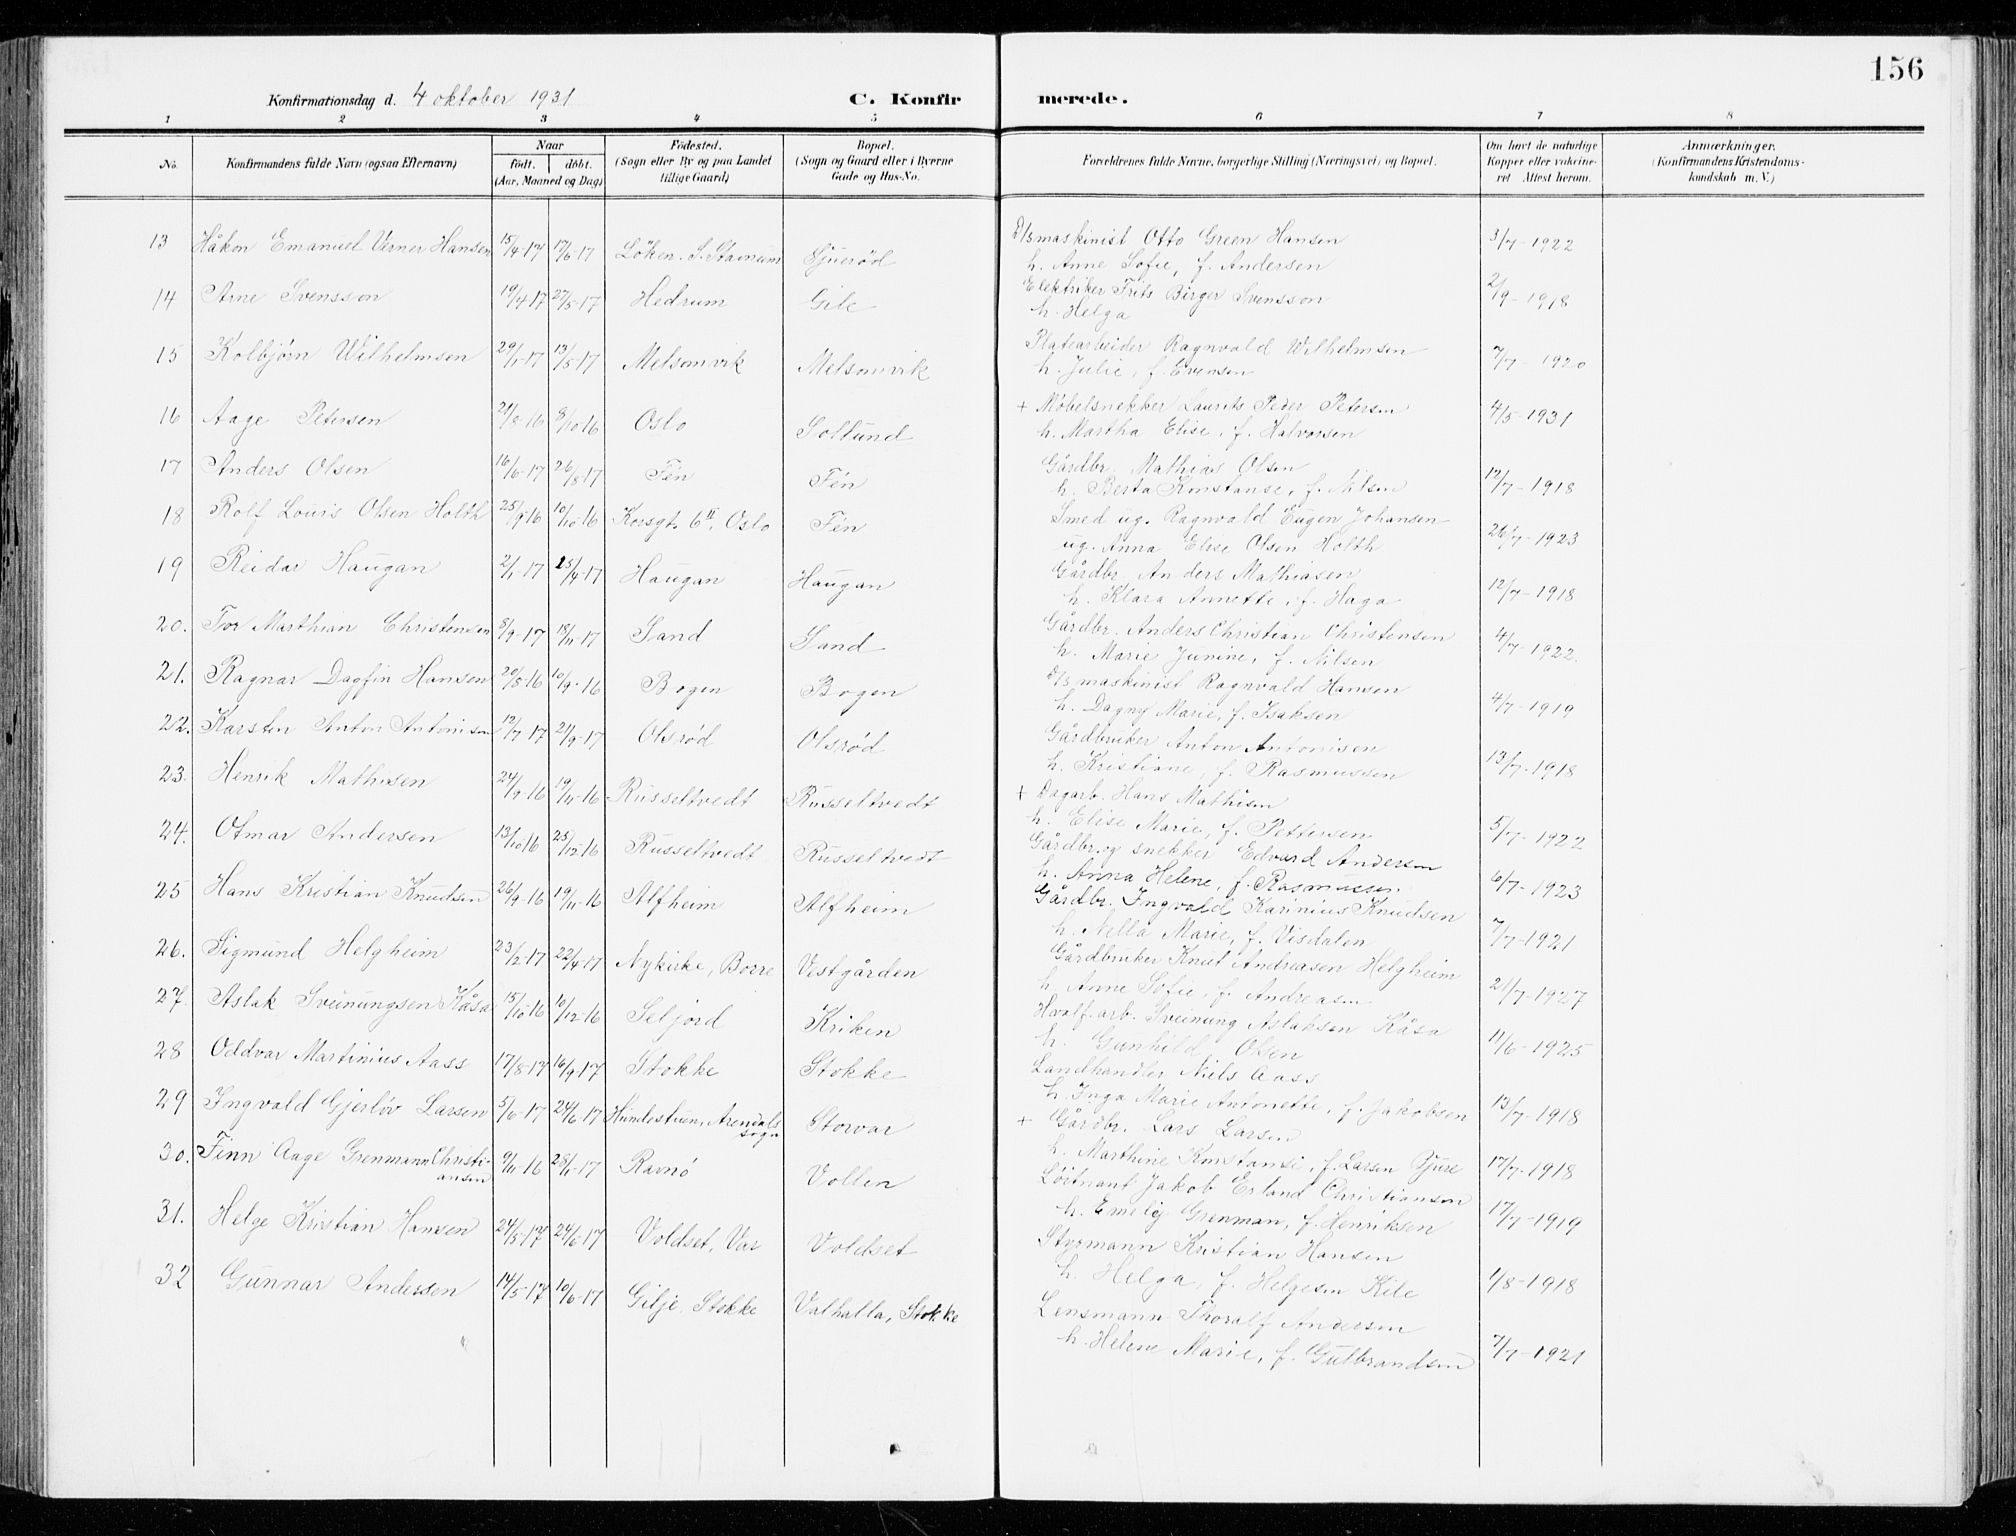 156
Konfirmationsdag d. 4 oktober 1931 C. Konfirmerede.
1 2 3 4 5 6 7 8
No. Konfirmandens fulde Navn (ogsaa Efternavn) Naar født. døbt. (Aar, Maaned og Dag) Fødested. (Sogn eller By og paa Landet tillige Gaard) Bopæl. (Sogn og Gaard eller i Byerne Gade og Hus-No. Forældrenes fulde Navne, borgerlige Stilling (Næringsvei) og Bopæl. Om havt de naturlige Kopper eller vakcineret Attest herom. Anmærkninger. (Konfirmandens Kristendomskundskab m. V.)
13 Håkon Emanuel Verner Hansen 15/4-17 17/6-17 Löken. S. Stavnum Gjuerød D/s maskinist Otto Green Hansen 3/7-1922
h. Anne Sofie, f. Andersen
14 Arne Svensson 19/4-17 27/5-17 Hedrum Gile Elektriker Frits Birger Svensson 2/9-1918
h. Helga
15 Kolbjørn Wilhelmsen 29/1-17 13/5-17 Melsomvik Melsomvik Platearbeider Ragnvald Wilhelmsen 7/7-1920
h. Julie, f. Evensen
16 Aage Petersen 21/8-16 8/10-16 Oslo Sollund + Møbelsnekker Laurits Peder Petersen 4/5-1931
h. Martha Elise, f. Halvorsen
17 Anders Olsen 16/6-17 26/8-17 Fén Fén Gårdbr. Mathias Olsen 12/7-1918
h. Berta Konstanse, f. Nilsen
18 Rolf Louis Olsen Holth 25/9-16 10/10-16 Korsgt. 6 II, Oslo Fén Smed ug. Ragnvald Eugen Johansen 26/7-1923
ug. Anna Elise Olsen Holth
19 Reidar Haugan 2/1-17 15/4-17 Haugan Haugan Gårdbr. Anders Mathiasen 12/7-1918
h. Klara Annette, f. Haga
20. Tor Marthian Christensen 8/9-17 18/11-17 Sand Sand Gårdbr. Anders Christian Christensen 4/7-1922.
h. Marie Junine, f. Nilsen
21. Ragnar Dagfin Hansen 20/8-16 10/9-16 Bogen Bogen D/s maskinist Ragnvald Hansen 4/7-1919
h. Dagny Marie, f. Isaksen
22. Karsten Anton Antonisen 12/7-17 21/9-17 Olsrød Olsrød Gårdbruker Anton Antonisen 13/7-1918
h. Kristiane, f. Rasmussen
23. Henrik Mathisen 24/9-16 19/11-16 Russeltvedt Russeltvedt + Dagarb. Hans Mathisen 5/7-1922
h. Elise Marie, f. Pettersen
24. Otmar Andersen 13/10-16 25/12-16 Russeltvedt Russeltvedt Gårdbr. og snekker Edvard Andersen 6/7-1923
h. Anna Helene, f. Rasmussen.
25 Hans Kristian Knudsen 26/9-16 19/11-16 Alfheim Alfheim Gårdbr. Ingvald Karinius Knudsen 7/7-1921
h. Nella Marie, f. Visdalen
26. Sigmund Helgheim 23/2-17 22/4-17 Nykirke, Borre Vestgården Gårdbruker Knut Andreasen Helgheim 21/7-1927
h. Anne Sofie, f. Andreasen
27. Aslak Sveinungsen Kåsa 15/10-16 10/12-16 Seljord Kriken Hvalf. arb. Sveinung Aslaksen Kåsa 11/6-1925
h. Gunhild Olsen
28 Oddvar Martinius Aass 17/8-17 16/9-17 Stokke Stokke Landhandler Niels Aass 13/7-1918
h. Inga Marie Antonette, f. Jakobsen
29 Ingvald Gjerløv Larsen 5/6-17 24/6-17 Hundestuen, Arendals sogn Storvar + Gårdbr. Lars Larsen 17/7-1918
h. Marthine Konstansi, f. Larsen Gjure
30. Finn Aage Grenmann Christiansen 9/11-16 28/1-17 Ravnø Vollen Løitnant Jakob Erland Christiansen 17/7-1919
h. Emely Grenman, f. Henriksen
31. Helge Kristian Hansen 24/5-17 24/6-17 Voldset, Var Voldset Styrmann Kristian Hansen 1/8-1918
h. Helga, f. Helgesen Kile
32 Gunnar Andersen 14/5-17 10/6-17 Gilje, Stokke Valhalla, Stokke Lensmann Thoralf Andersen 7/7-1921
h. Helene Marie, f. Gulbrandsen